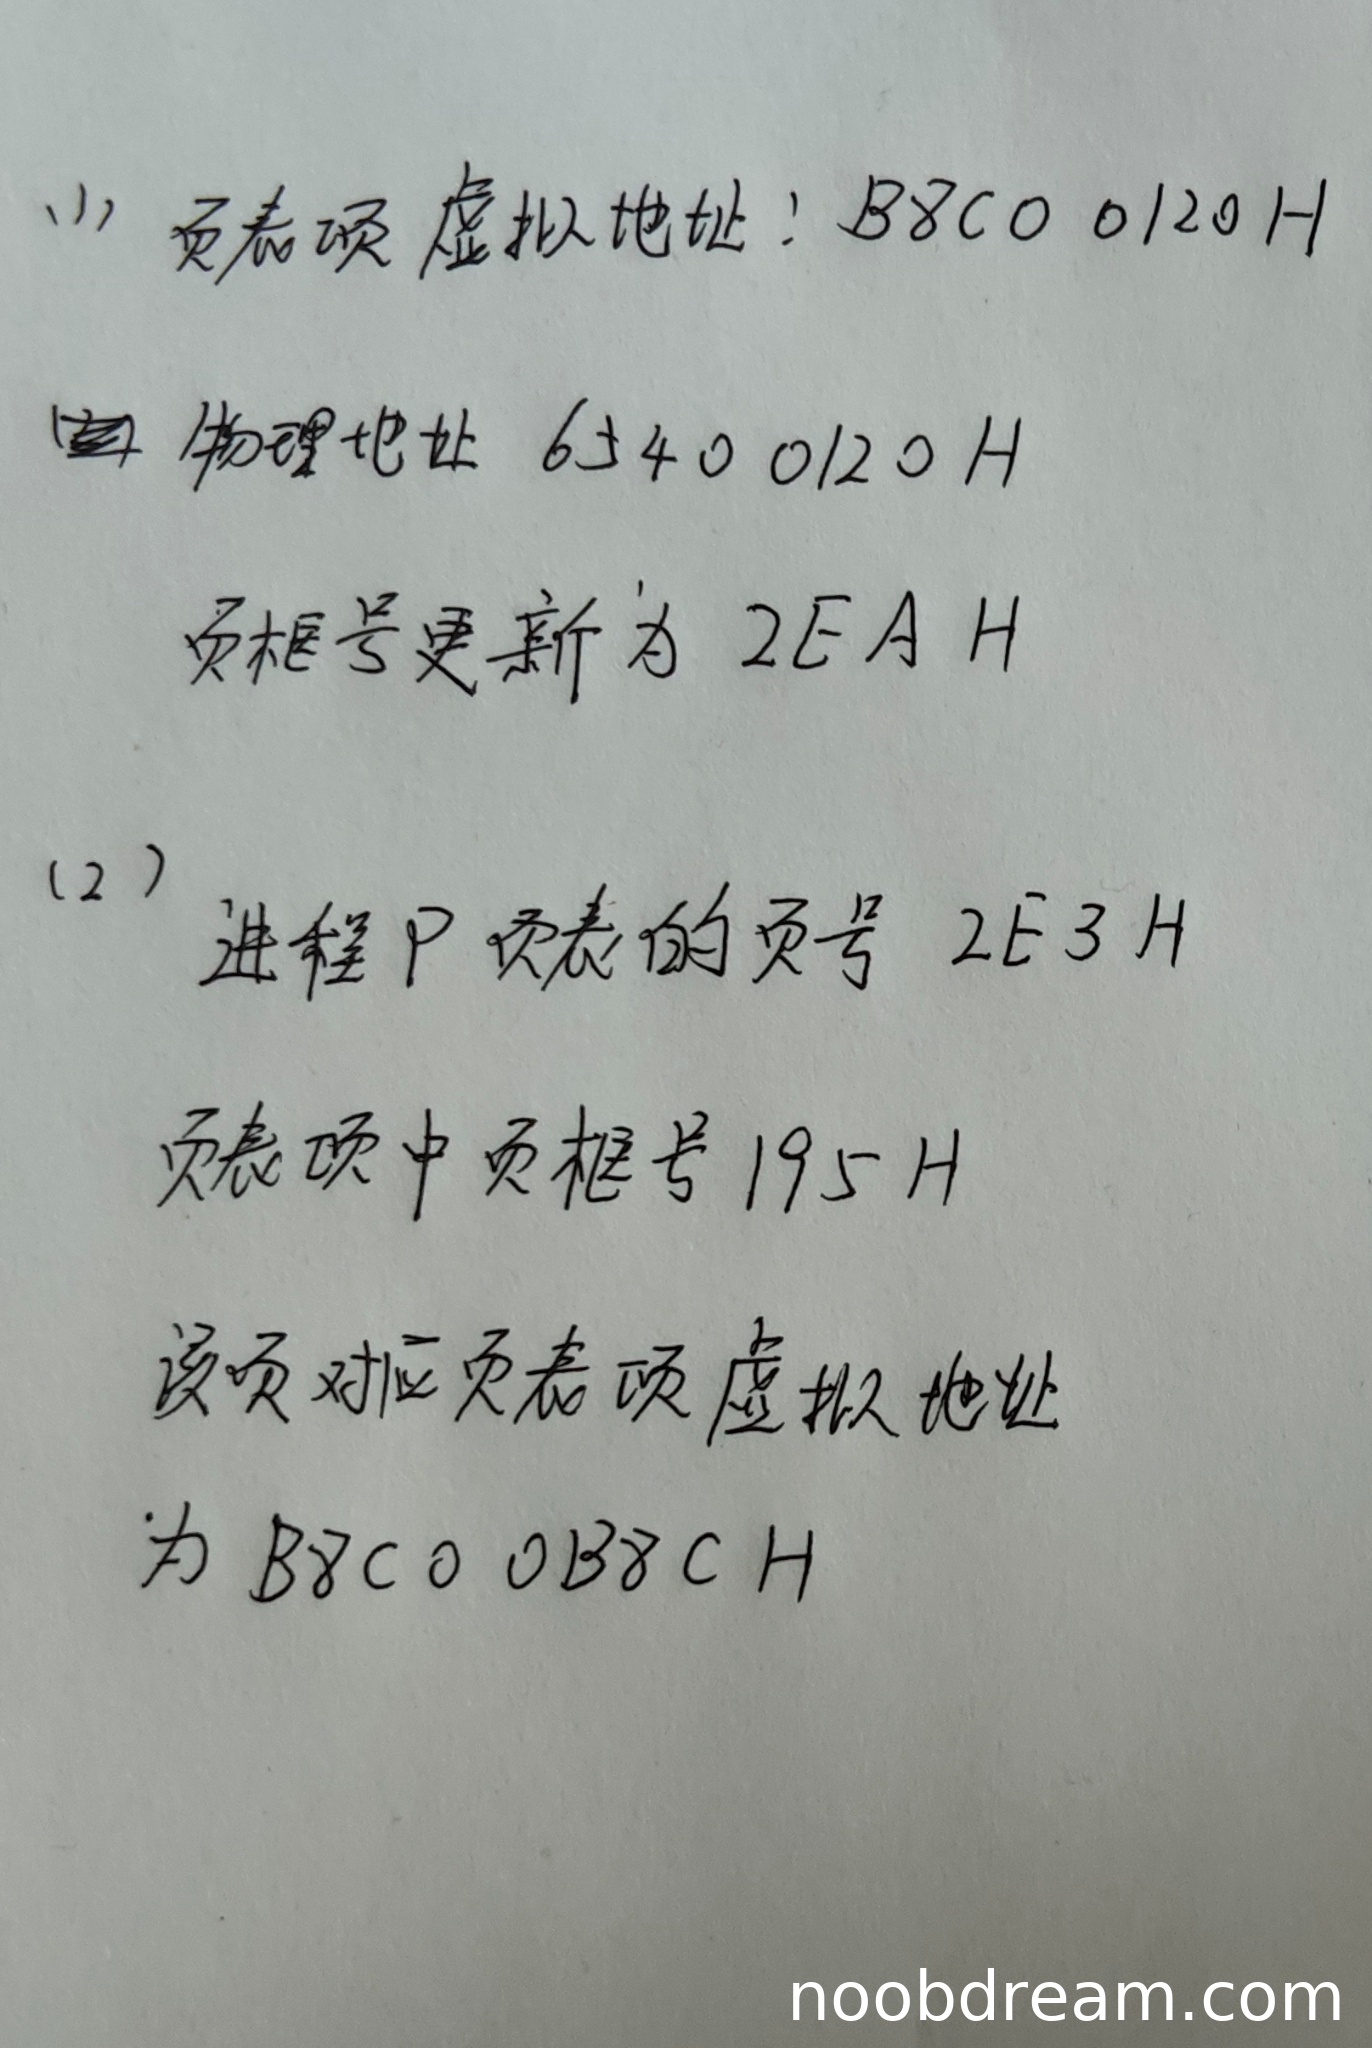 (1) 页表项虚拟地址：B8C0 0120H
物理地址 6540 0120H
页框号更新为 2EAH
(2)
进程P页表的页号 2E3H
页表项中页框号195H
该页对应页表项虚拟地址
为 B8C0 0B8CH
noobdream.com